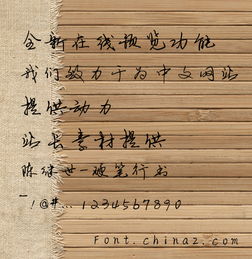 全新在线预览功能
我们致力于为中文网站
提供动力
站长素材提供
陈继世-硬笔行书
~!@#...1234567890
Font.chinaz.com